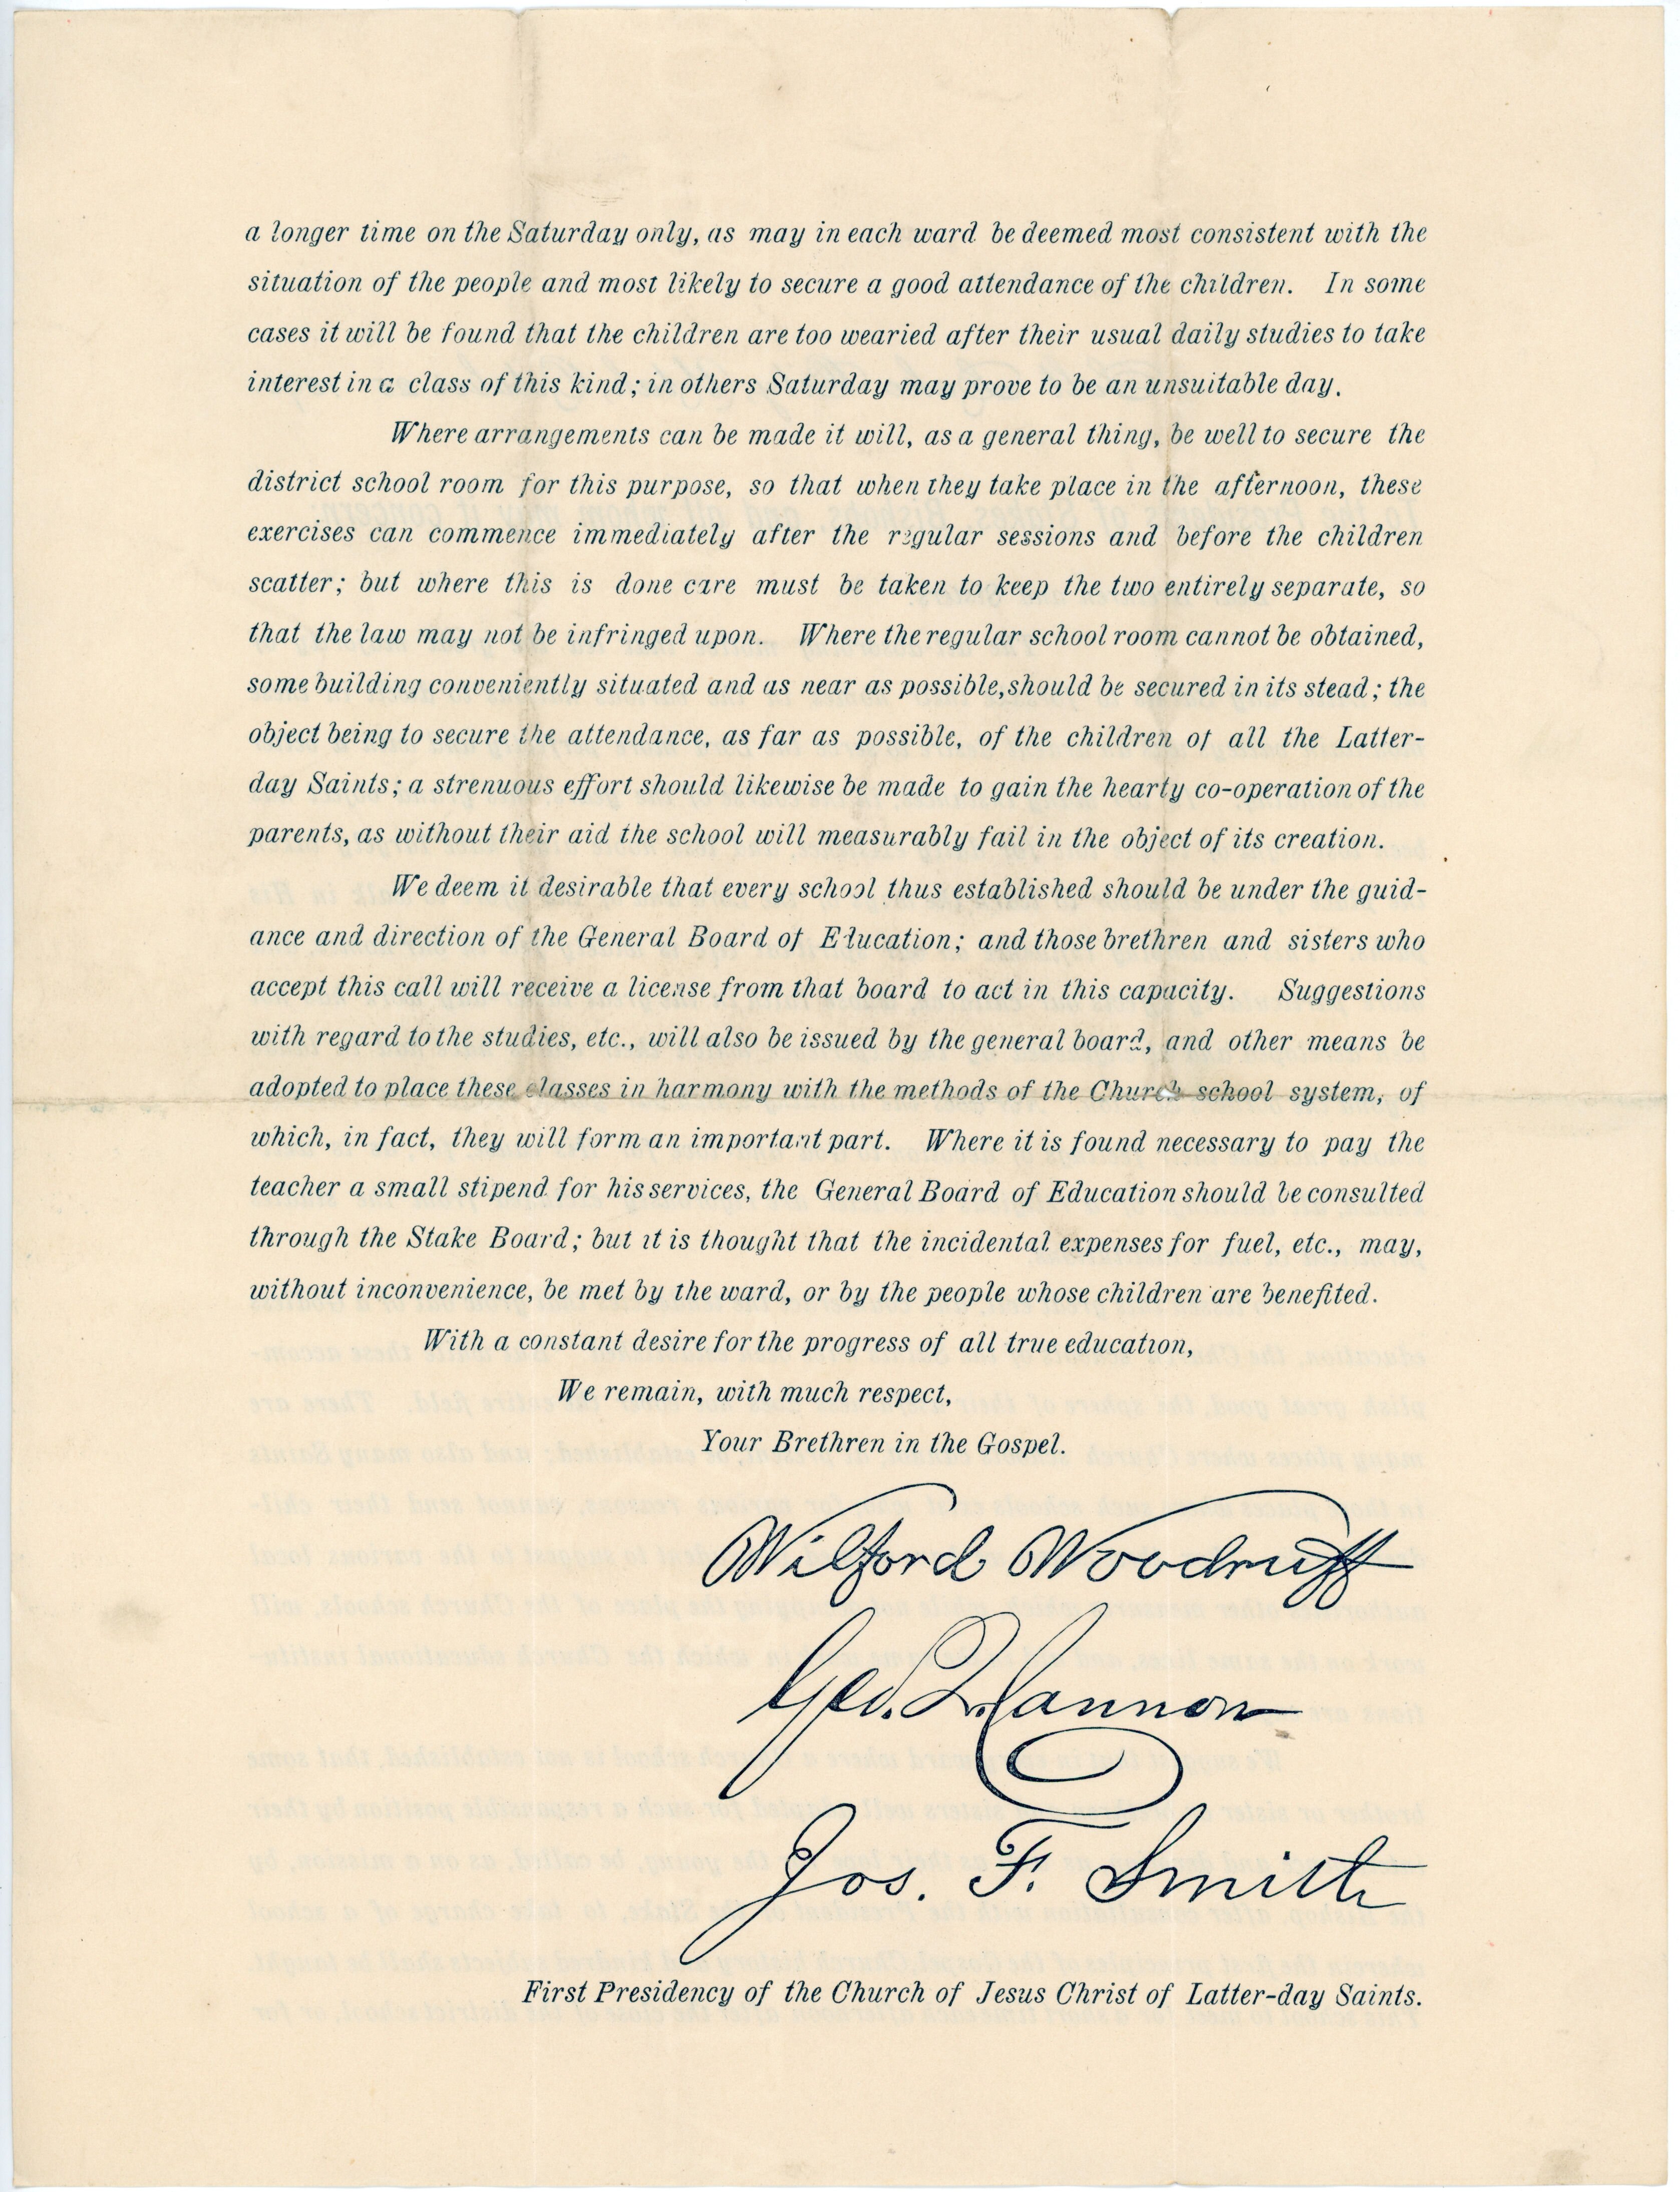 a longer time on the Saturday only, as may in each ward be deemed most consistent with the
situation of the people and most likely to secure a good attendance of the children. In some
cases it will be found that the children are too wearied after their usual daily studies to take
interest in a class of this kind; in others Saturday may prove to be an unsuitable day.
Where arrangements can be made it will, as a general thing, be well to secure the
district school room for this purpose, so that when they take place in the afternoon, these
exercises can commence immediately after the regular sessions and before the children
scatter; but where this is done care must be taken to keep the two entirely separate, so
that the law may not be infringed upon. Where the regular school room cannot be obtained,
some building conveniently situated and as near as possible, should be secured in its stead; the
object being to secure the attendance, as far as possible, of the children of all the Latter-
day Saints; a strenuous effort should likewise be made to gain the hearty co-operation of the
parents, as without their aid the school will measurably fail in the object of its creation.
We deem it desirable that every school thus established should be under the guid-
ance and direction of the General Board of Education; and those brethren and sisters who
accept this call will receive a license from that board to act in this capacity. Suggestions
with regard to the studies, etc., will also be issued by the general board, and other means be
adopted to place these classes in harmony with the methods of the Church school system, of
which, in fact, they will form an important part. Where it is found necessary to pay the
teacher a small stipend for his services, the General Board of Education should be consulted
through the Stake Board; but it is thought that the incidental expenses for fuel, etc., may,
without inconvenience, be met by the ward, or by the people whose children are benefited.
With a constant desire for the progress of all true education,
We remain, with much respect,
Your Brethren in the Gospel.
Wilford Woodruff
Geo. Q. Cannon
Jos. F. Smith
First Presidency of the Church of Jesus Christ of Latter-day Saints.